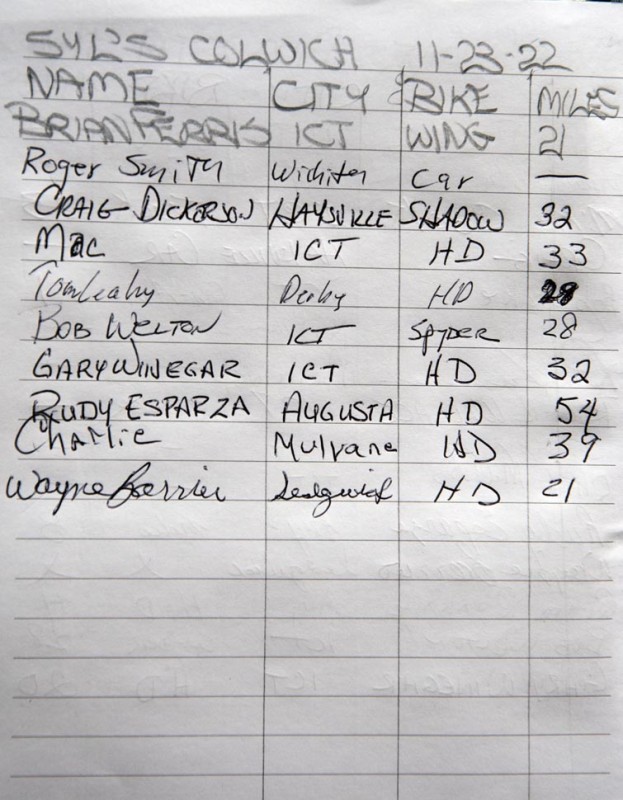 SYL'S COLWICH 11-23-22
NAME CITY BIKE MILES
BRIAN FERRIS ICT WING 21
Roger Smith Wichita Car —
CRAIG DICKERSON HAYSVILLE SHADOW 32
Mac ICT HD 33
Tom Leahy Derby HD 28
BOB WELTON ICT SPYDER 28
GARY WINEGAR ICT HD 32
RUDY ESPARZA AUGUSTA HD 54
Charlie Mulvane HD 39
Wayne Sedgwick HD 21